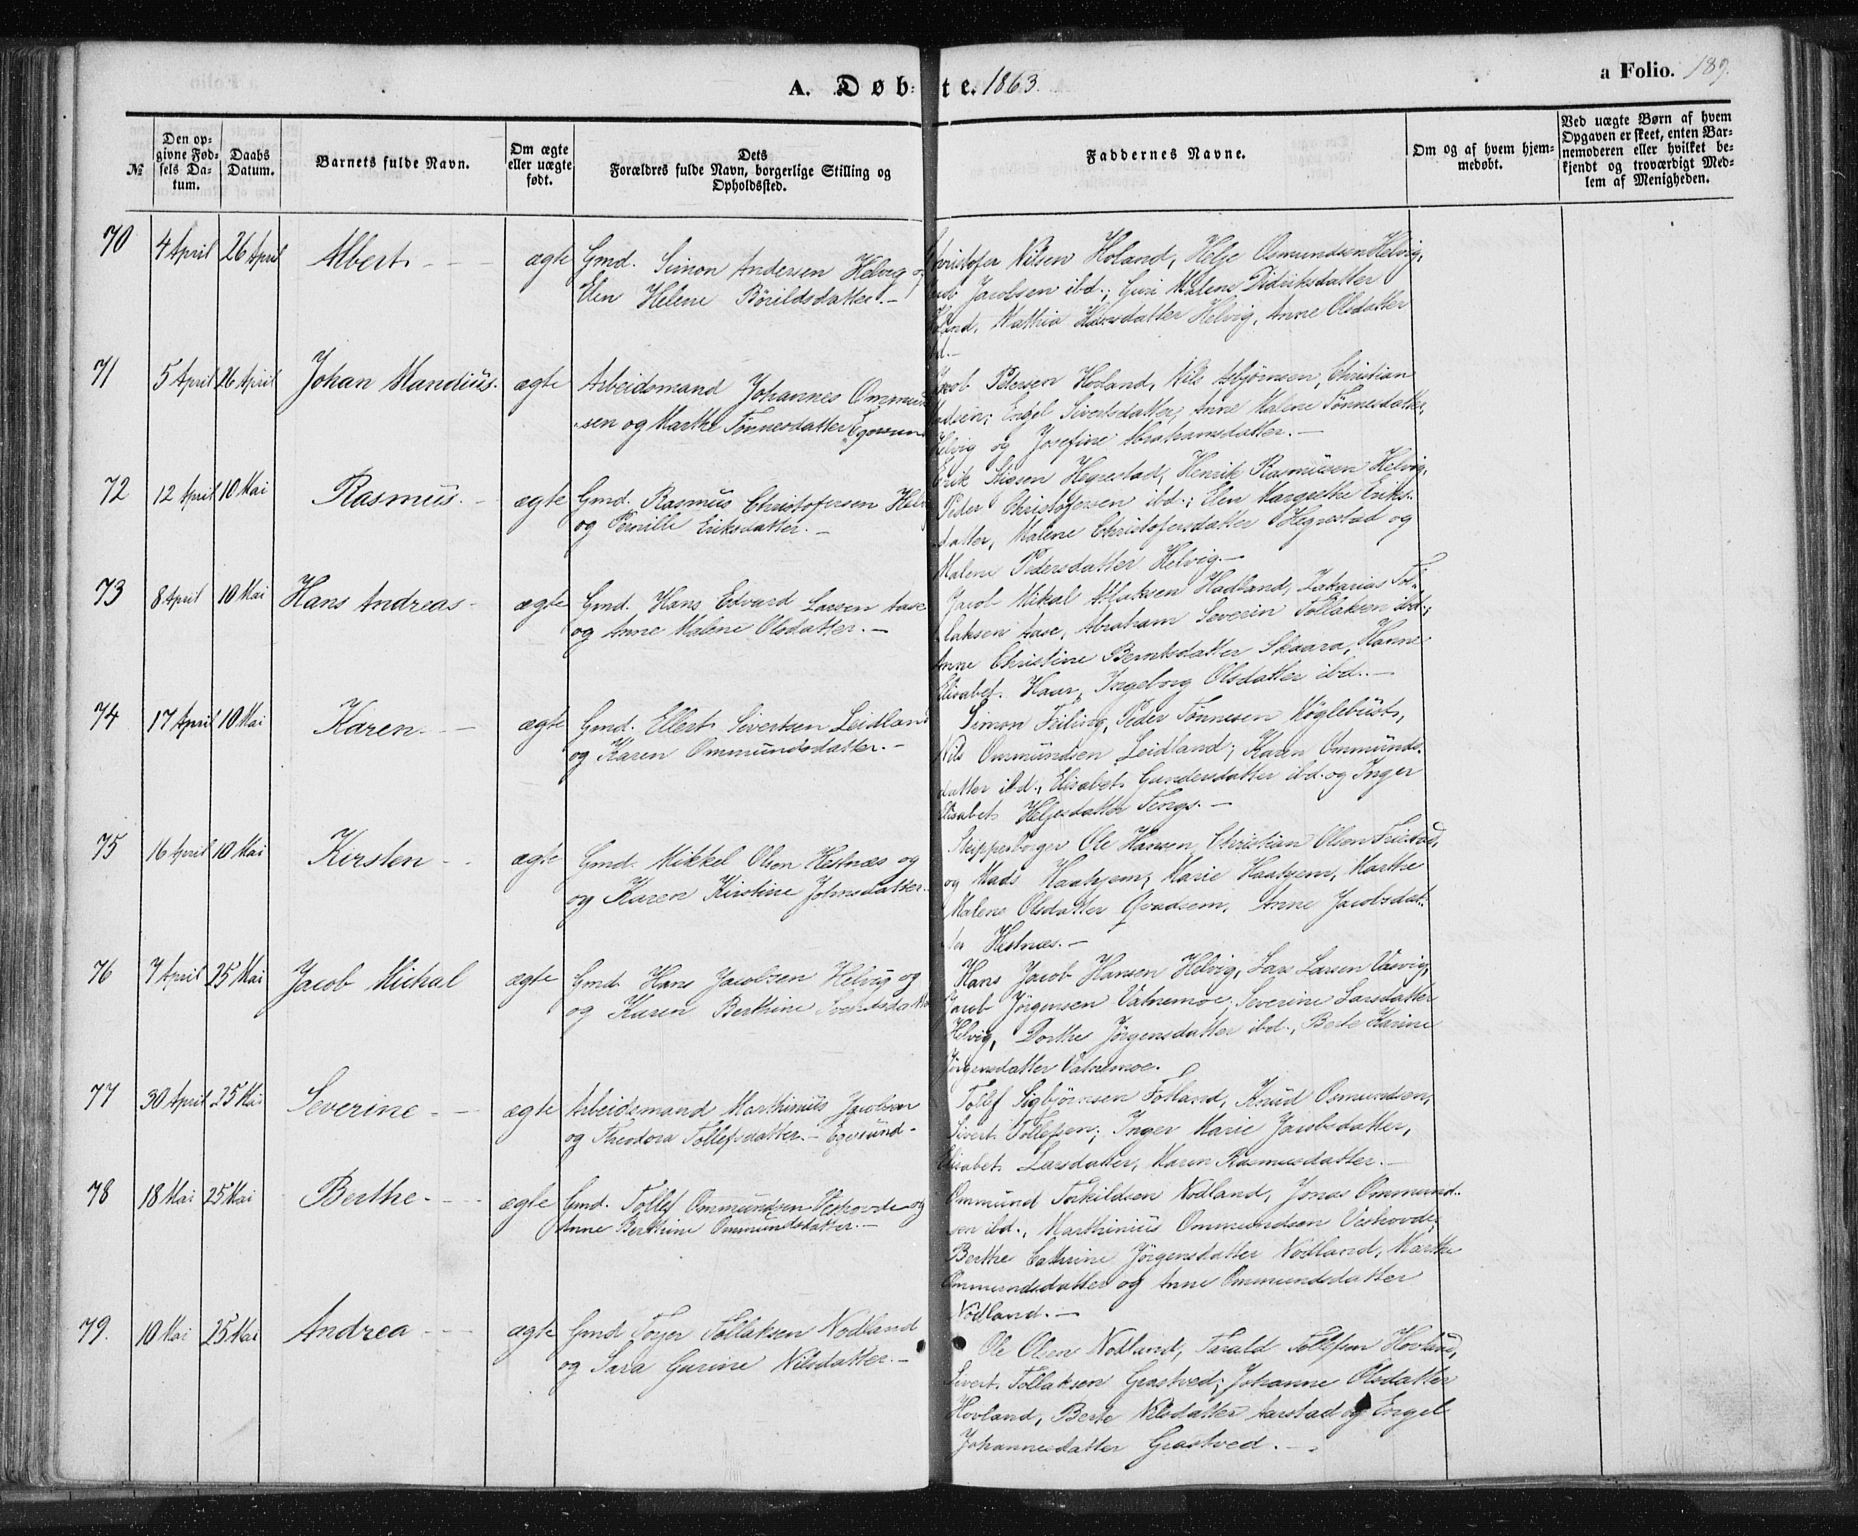 A. Døbte. 1863.
a Folio. 189.
№
Den op-
givne Fød-
sels Da-
tum.
Daabs
Datum.
Barnets fulde Navn.
Om ægte
eller uægte
født.
Dets
Forældres fulde Navn, borgerlige Stilling og
Opholdssted.
Faddernes Navne.
Om og af hvem hjem-
medøbt.
Ved uægte Børn af hvem
Opgaven er skeet, enten Bar-
nemoderen eller hvilket be-
kjendt og troværdigt Med-
lem af Menigheden.
70 4 April 26 April Albert. ægte Gmd. Simon Andersen Helvig og
Elen Helene Börildsdatter. -
Christofer Nilsen Holand, Helje Osmundsen Helvig,
Jacobsen ibd.; Guri Malene Didriksdatter
Holand, Mathia Hansdatter Helvig, Anne Olsdatter
ibd. -
71 5 April 26 April Johan Mandius. ægte Arbeidsmand Johannes Ommund-
sen og Marthe Tönnesdatter Egersund
Jacob Petersen Hovland, Nils Asbjørnsen, Christian
Madsen; Engel Sivertsdatter, Anne Malene Tönnesdatter,
Helvig og Josefine Abrahamsdatter. -
72 12 April 10 Mai Rasmus. - ægte Gmd. Rasmus Christofersen Helvig
og Pernille Eriksdatter. -
Erik Hegrestad, Henrik Rasmusen Helvig,
Peder Christofersen ibd.; Elen Margrethe Eriks-
datter, Malene Christofersdatter Hegrestad og
Malene Pedersdatter Helvig. -
73 8 April 10 Mai Hans Andreas - ægte Gmd. Hans Edvard Larsen Aase
og Anne Malene Olsdatter. -
Jacob Mikal Hadland, Zakarias Tol-
laksen Aase, Abraham Severin Tollaksen ibd.;
Anne Christine Berntsdatter Skaara, Hanne
Elisabet. Haar, Ingeborg Olsdatter ibd. -
74 17 April 10 Mai Karen. - ægte Gmd. Ellert Sivertsen Leidland
og Karen Ommundsdatter. -
Simon Feiling, Peder Tönnesen Möglebust,
Nils Ommundsen Leidland; Karen Ommunds-
datter ibd., Elisabet Gundersdatter ibd. og Inger
Elisabet Heljesdatter Tengs. -
75 16 April 10 Mai Kirsten - - ægte Gmd. Mikkel Olsen Hestnæs og
og Karen Kirstine Johnsdatter.
Skipperborger Ole Hansen, Christian Olsen
og Mads Haahjem; Marie Haahjem, Marthe
Malene Olsdatter Qvadsem, Anne Jacobsdat-
ter Hestnæs. -
76 7 April 25 Mai Jacob Michal ægte Gmd. Hans Jacobsen Helvig og
og Karen Berthine
Hans Jacob Hansen Helvig, Lars Larsen
Jacob Jörgensen Vatnemoe, Severine Larsdatter
Helvig, Dorthe Jörgensdatter ibd., Berte Karine
Jörgensdatter Vatnemoe.
77 30 April 25 Mai Severine - - ægte Arbeidsmand Marthinius Jacobsen
og Theodora Tollefsdatter. - Egersund -
Tollef Sigbörnsen Folland, Knud Osmundsen,
Sivert Tollefsen; Inger Marie Jacobsdatter,
Elisabet Larsdatter, Maren Rasmusdatter. -
78 18 Mai 25 Mai Berthe. - ægte Gmd. Tollef Ommundsen Veshovde og
Anne Berthine Ommundsdatter. -
Ommund Torkildsen Nodland, Jonas Ommund-
sen ibd., Marthinius Ommundsen Veshovde;
Berthe Cathrine Jörgensdatter Nodland, Marthe
Ommundsdatter og Anne Ommundsdatter
Nodland. -
79. 10 Mai 25 Mai Andrea - ægte Gmd Torger Tollaksen Nodland
og Sara Gurine Nilsdatter. -
Ole Olsen Nodland, Tarald Tollefsen Hovland,
Sivert Tollaksen Grastved; Johanne Olsdatter
Hovland, Berte Nilsdatter Aarstad og Engel
Johannesdatter Grastved. -